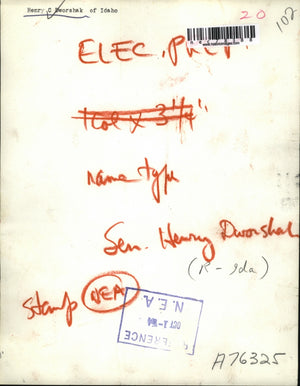 Henry C Dworshak of Idaho
20
102
ELEC. PREP.
1 Col x 3 1/4"
name type
Sen. Henry Dworshak
(R - Ida)
stamp NEA
REFERENCE
OCT 1 -
N.E.A.
A76325